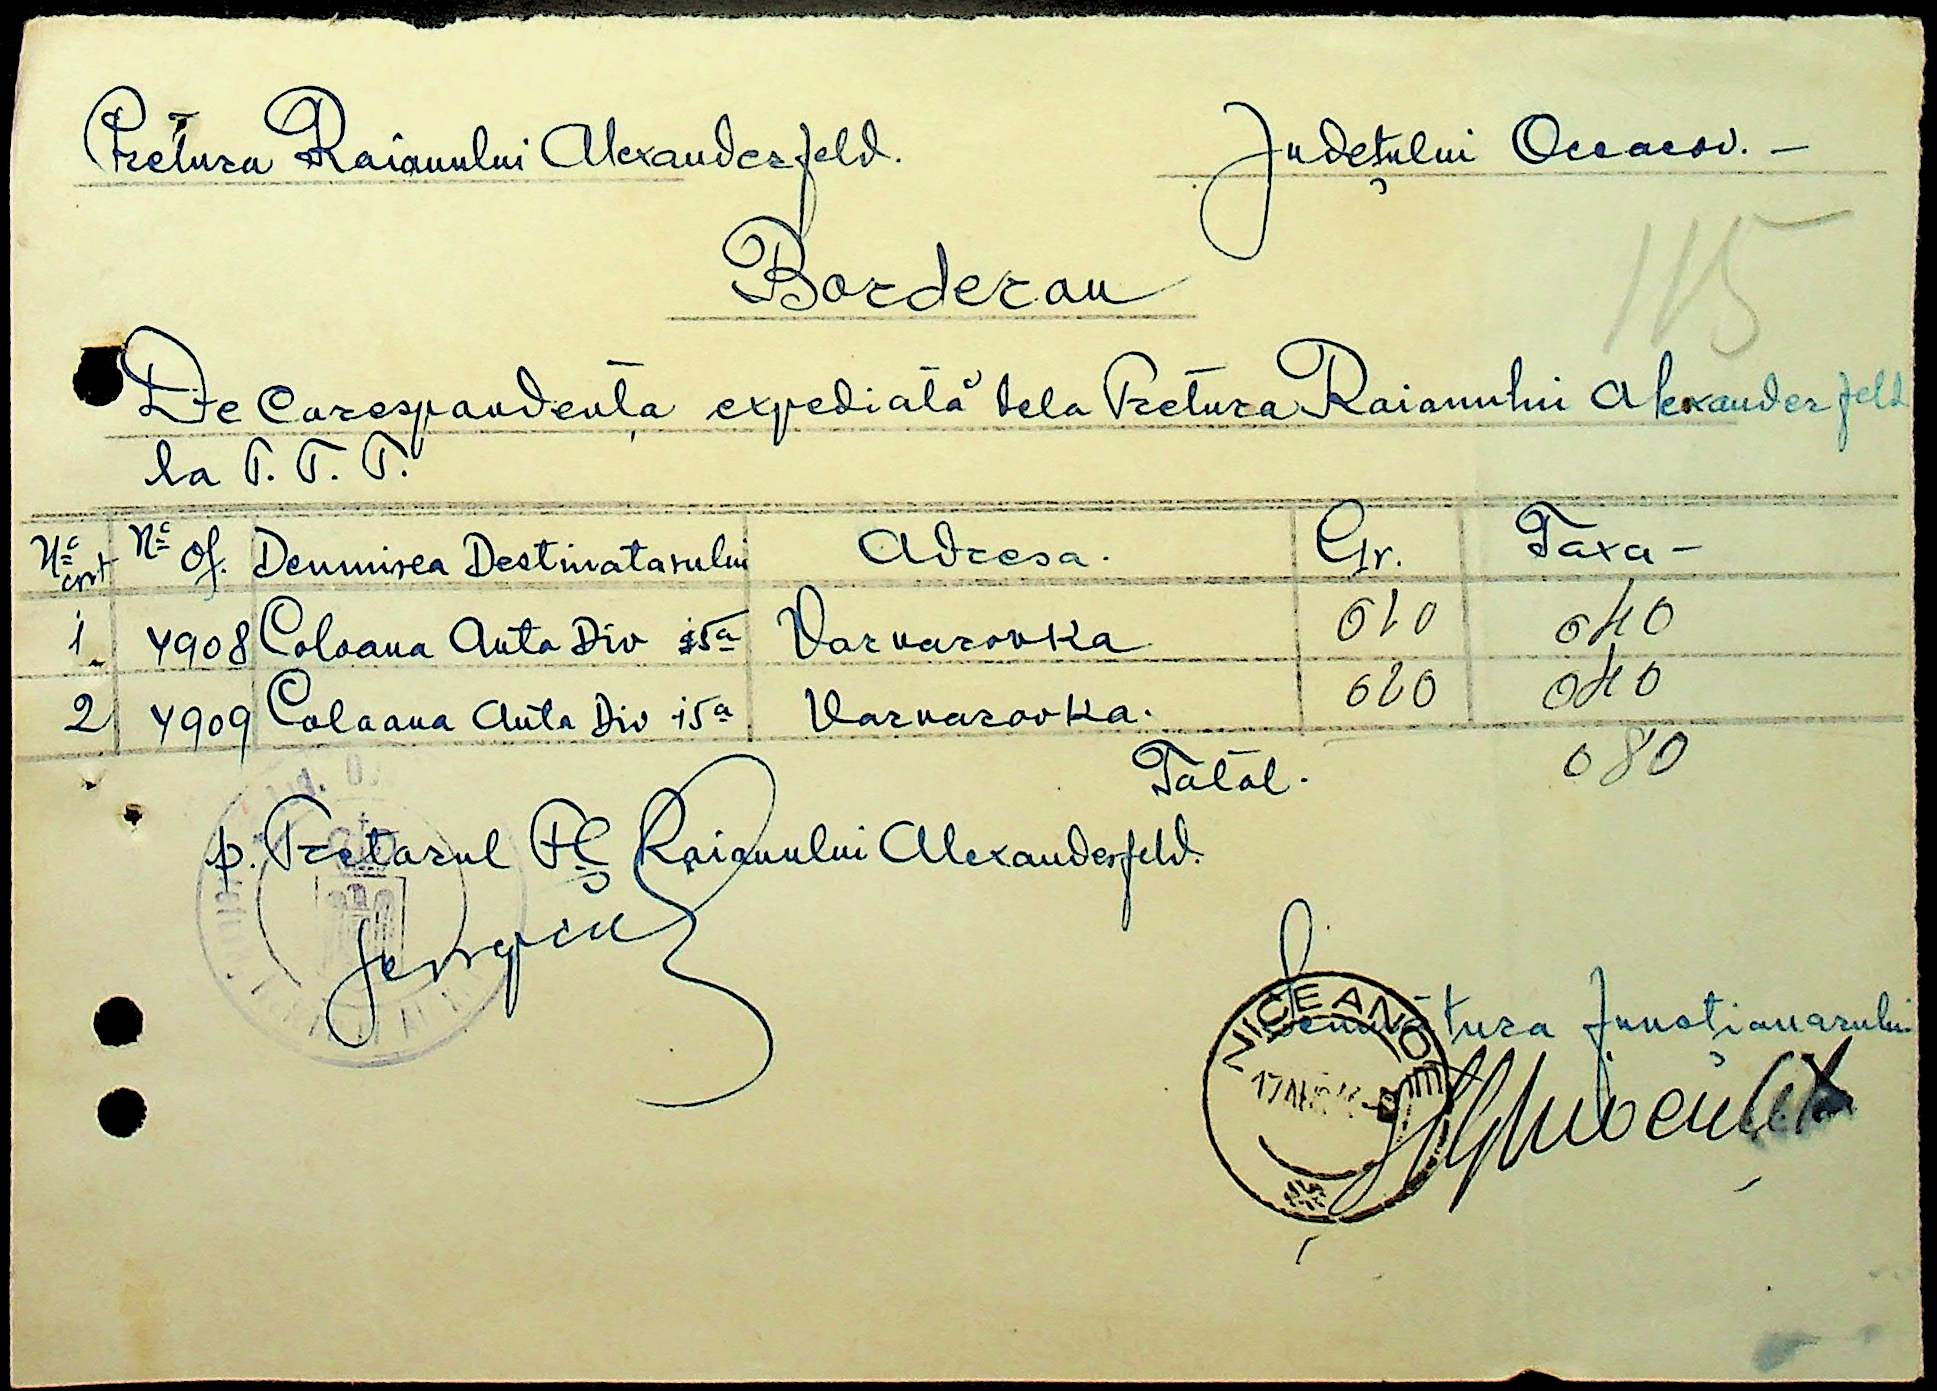 Pretura Raionului Alexanderfeld. Județului Oceacov. -
115
Borderou
De Corespondența expediată dela Pretura Raionului Alexanderfeld
la P. T. T.
No crt No of. Denumirea Destinatarului Adresa. Gr. Taxa -
1 4908 Coloana Auto Div 15a Varvarovka 020 040
2 4909 Coloana Auto Div 15a Varvarovka. 020 040
Total. 080
p. Pretorul Pl. Raionului Alexanderfeld.
Semnătura funcționarului
NICEANOE